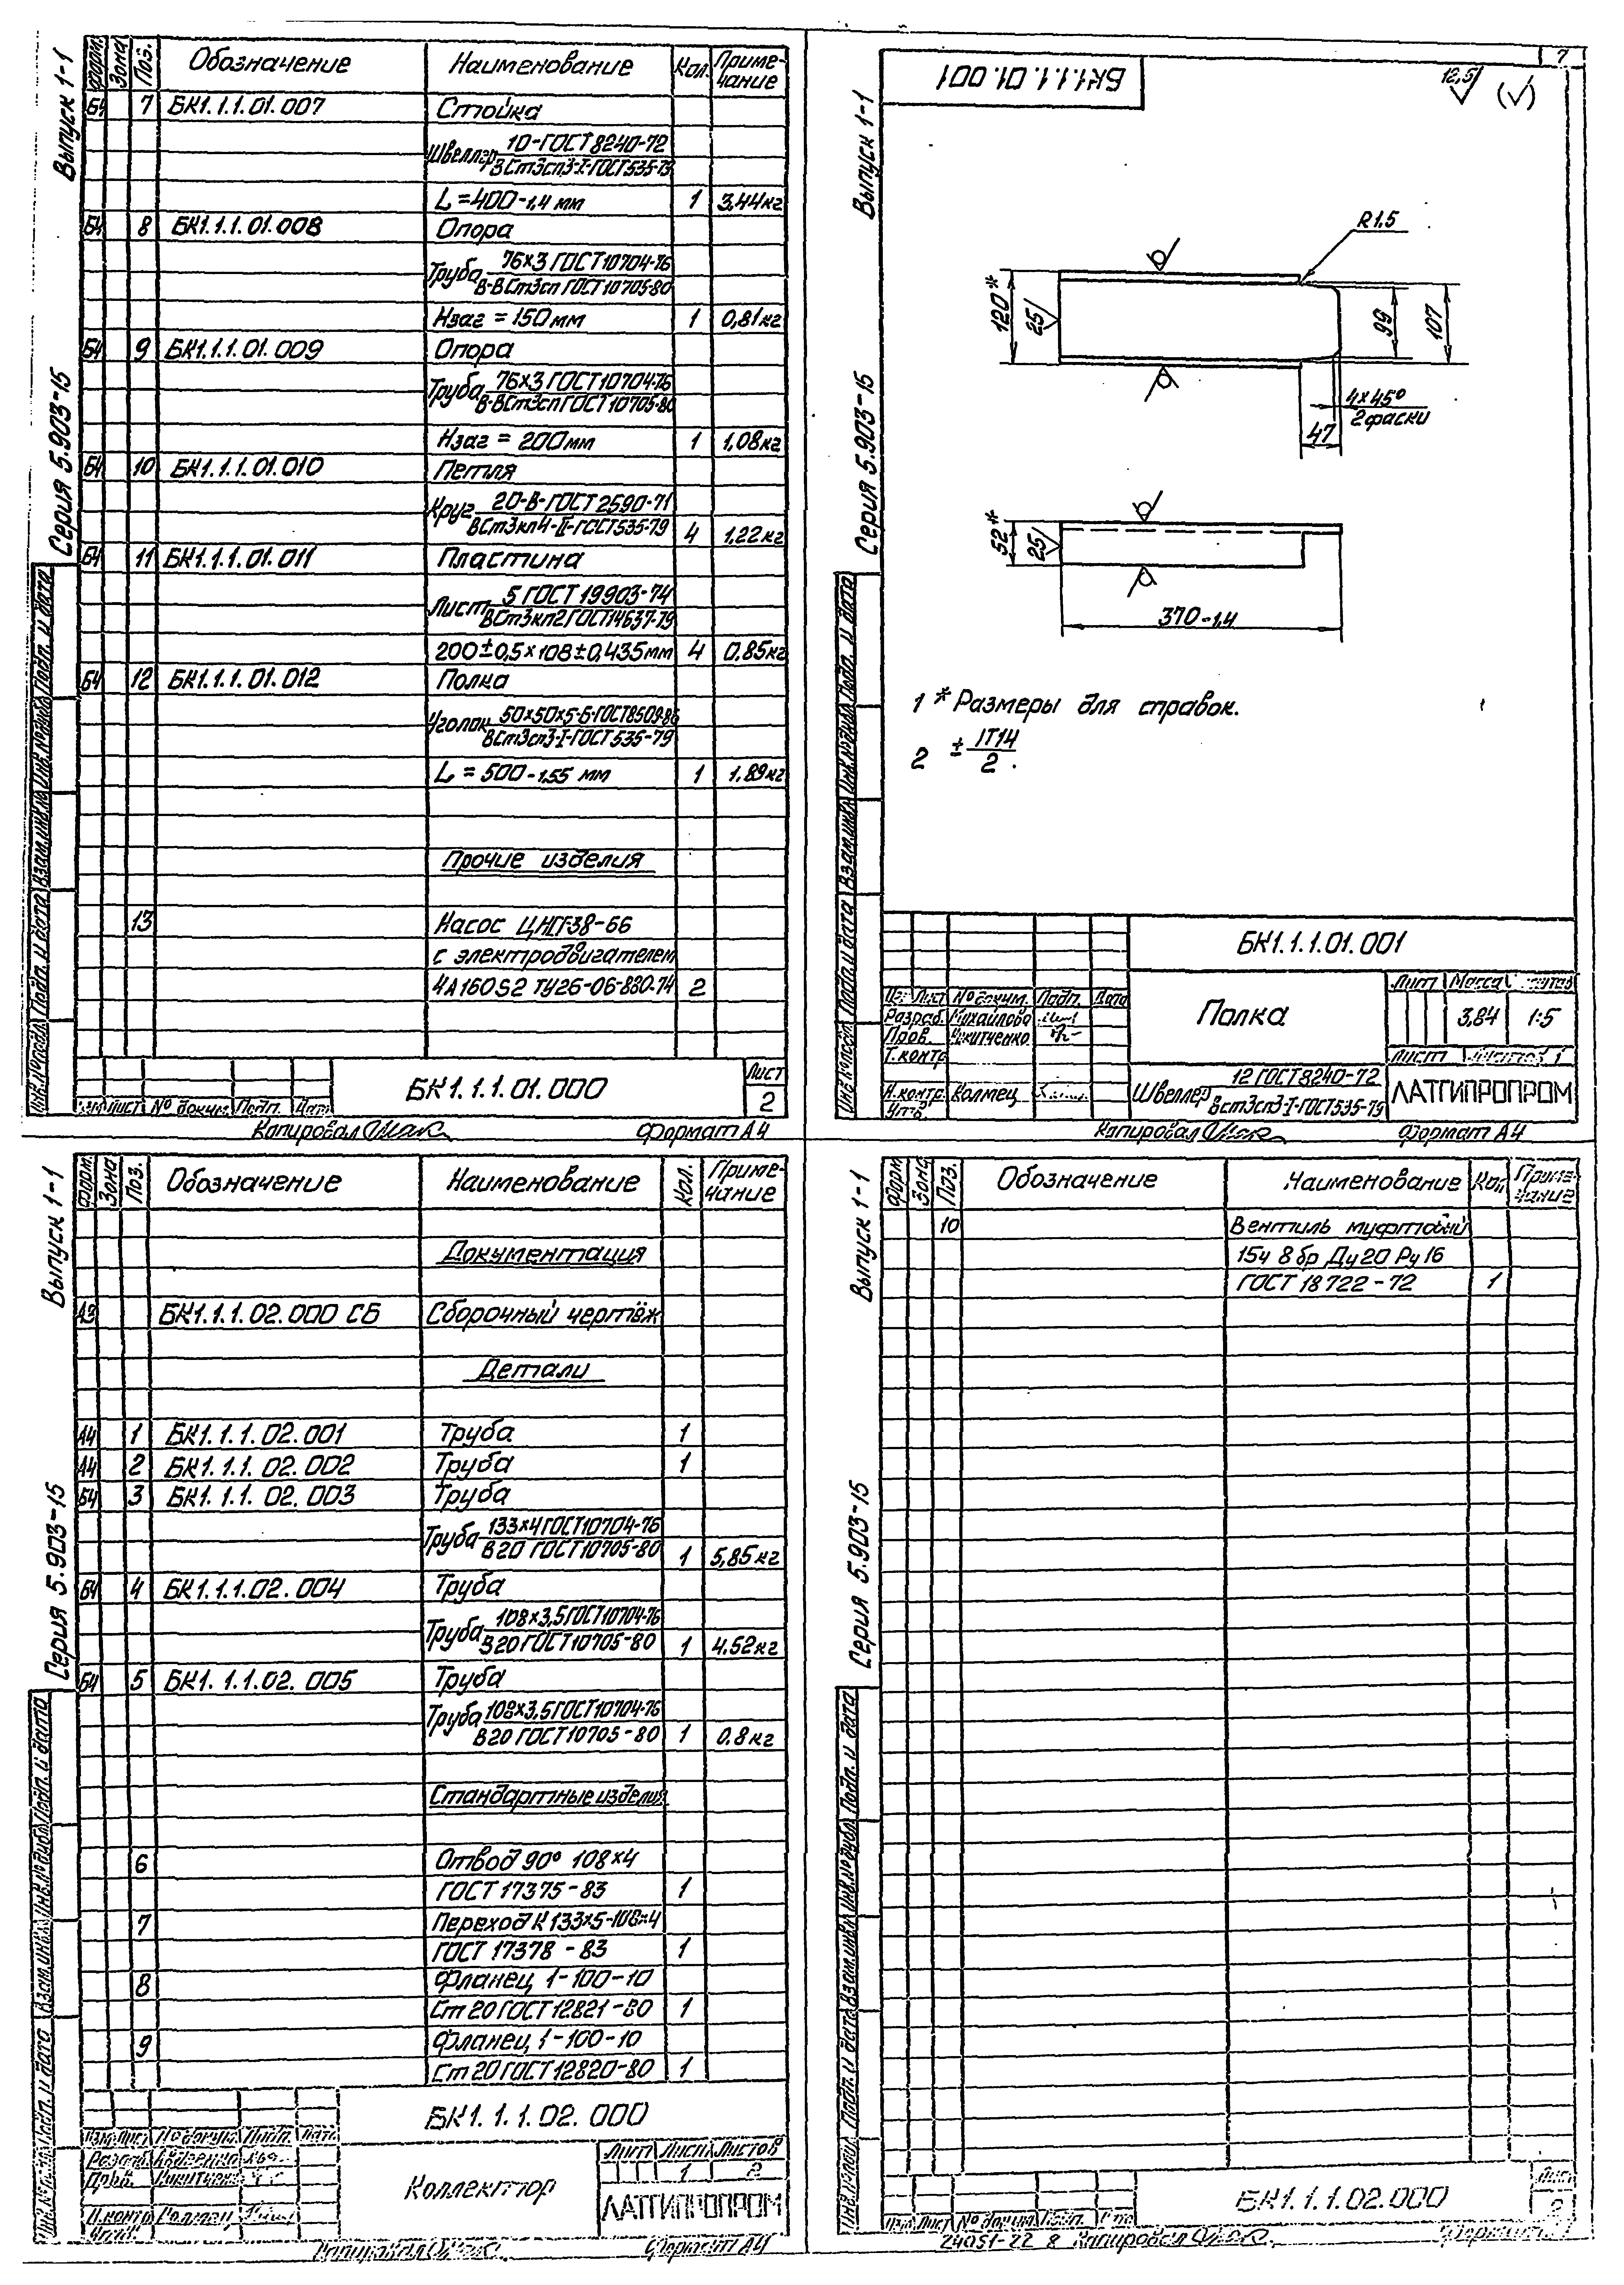 Выпуск 1-1
Серия 5.903-15
Форм. Зона Поз. Обозначение Наименование Кол. Приме-
чание
Б4 7 БК1.1.1.01.007 Стойка
Швеллер 10-ГОСТ8240-72
ВСт3сп3-I-ГОСТ535-79
L=400-1,4 мм 1 3,44кг
Б4 8 БК1.1.1.01.008 Опора
Труба 76×3 ГОСТ10704-76
В-ВСт3сп ГОСТ10705-80
Нзаг = 150мм 1 0,81кг
Б4 9 БК1.1.1.01.009 Опора
Труба 76×3 ГОСТ10704-76
В-ВСт3сп ГОСТ10705-80
Нзаг = 200мм 1 1,08кг
Б4 10 БК1.1.1.01.010 Петля
Круг 20-В-ГОСТ2590-71
ВСт3кп4-II-ГОСТ535-79 4 1,22кг
Б4 11 БК1.1.1.01.011 Пластина
Лист 5 ГОСТ 19903-74
ВСт3кп2 ГОСТ14637-79
200±0,5×108±0,435мм 4 0,85кг
Б4 12 БК1.1.1.01.012 Полка
Уголок 50×50×5-Б-ГОСТ8509-86
ВСт3сп3-I-ГОСТ535-79
L = 500-1,55 мм 1 1,89кг
Прочие изделия
13 Насос ЦНГ-38-66
с электродвигателем
4А160S2 ТУ26-06-830-74 2
Инв.№подл. Подп. и дата Взам.инв.№ Инв.№дубл. Подп. и дата
Изм. Лист № докум. Подп. Дата
БК1.1.1.01.000
Лист
2
Копировал Формат А4
7
Выпуск 1-1
Серия 5.903-15
БК1.1.1.01.001
12,5 (√)
R1,5
120*
25
99
107
4×45°
2 фаски
47
52*
25
370-1,4
1 *Размеры для справок.
2 ± IT14
2 .
Подп. и дата Взам.инв.№ Инв.№дубл. Подп. и дата
БК1.1.1.01.001
Лист № докум. Подп. Дата
Разраб. Михайлова
Пров. Никитченко
Т.контр.
Н.контр. Колмец
Утв.
Полка
Лит Масса Масштаб
3,84 1:5
Лист Листов 1
Швеллер 12 ГОСТ8240-72
ВСт3сп3-I-ГОСТ535-79
ЛАТГИПРОПРОМ
Копировал Формат А4
Выпуск 1-1
Серия 5.903-15
Форм. Зона Поз. Обозначение Наименование Кол. Приме-
чание
Документация
А3 БК1.1.1.02.000 СБ Сборочный чертёж
Детали
А4 1 БК1.1.1.02.001 Труба 1
А4 2 БК1.1.1.02.002 Труба 1
Б4 3 БК1.1.1.02.003 Труба
Труба 133×4 ГОСТ10704-76
В20 ГОСТ10705-80 1 5,85кг
Б4 4 БК1.1.1.02.004 Труба
Труба 108×3,5 ГОСТ10704-76
В20 ГОСТ10705-80 1 4.52кг
Б4 5 БК1.1.1.02.005 Труба
Труба 108×3,5 ГОСТ10704-76
В20 ГОСТ10705-80 1 0.8кг
Стандартные изделия
6 Отвод 90° 108×4
ГОСТ 17375-83 1
7 Переход К 133×5-108×4
ГОСТ 17378-83 1
8 Фланец 1-100-10
Ст 20 ГОСТ 12821-80 1
9 Фланец 1-100-10
Ст 20 ГОСТ 12820-80 1
Подп. и дата Взам.инв.№ Инв.№дубл. Подп. и дата
БК1.1.1.02.000
Изм. Лист № докум. Подп. Дата
Разраб.
Пров.
Н.контр. Колмец
Коллектор
Лит Лист Листов
1 2
ЛАТГИПРОПРОМ
Копировал Формат А4
Выпуск 1-1
Серия 5.903-15
Форм. Зона Поз. Обозначение Наименование Кол. Приме-
чание
10 Вентиль муфтовый
15ч 8бр Ду20 Ру16
ГОСТ 18722-72 1
Подп. и дата Взам.инв.№ Инв.№дубл. Подп. и дата
Изм. Лист № докум. Подп.
БК1.1.1.02.000
Лист
2
24051-22 8 Копировал Формат